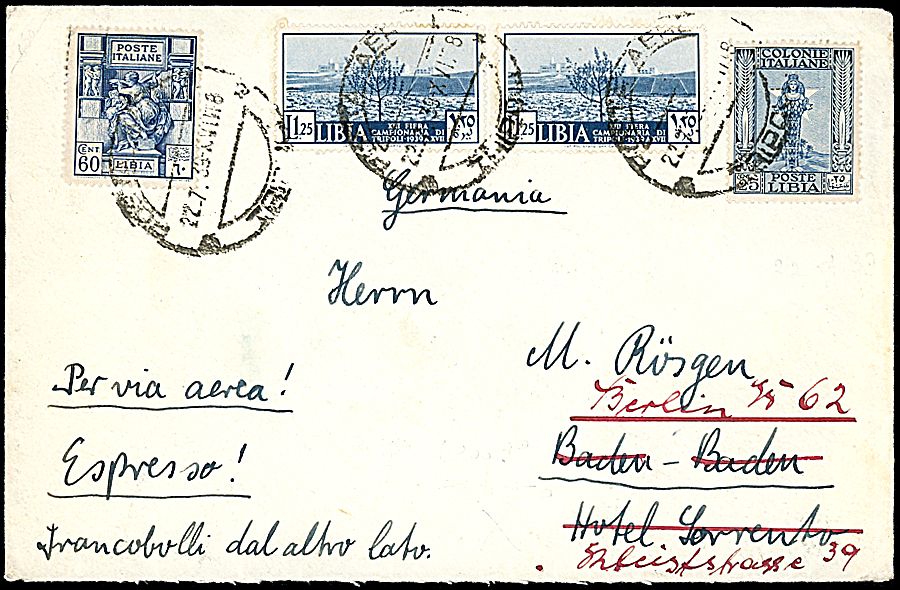 POSTE
ITALIANE
CENT
60
LIBIA
٦٠
L1.25
LIBIA
XIII FIERA
CAMPIONARIA DI
TRIPOLI 1939 XVII
١٫٢٥
L1.25
LIBIA
XIII FIERA
CAMPIONARIA DI
TRIPOLI 1939 XVII
١٫٢٥
COLONIE
ITALIANE
25
POSTE
LIBIA
٢٥
22.7.39.XVII
Germania
Herrn
M. Rösgen
Berlin W 62
Baden - Baden
Hotel Sorrento
Kleiststrasse 39
Per via aerea!
Espresso!
Francobolli dal altro lato.